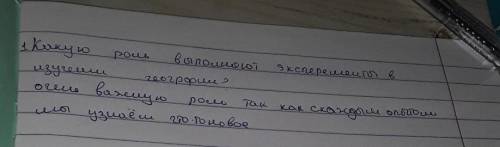 1. Какую роль выполняют эксперементы в
изучении географии?
очень важную роль так как скаждым опытом
мы узнаём что-то новое